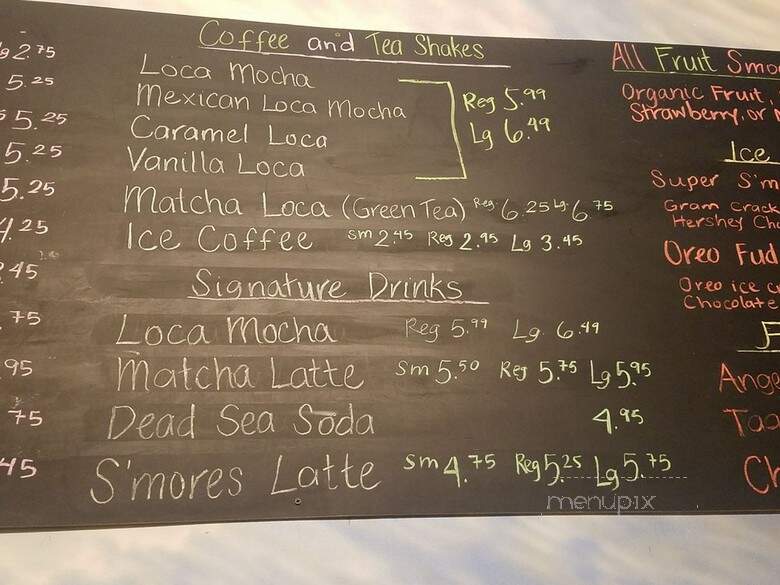 g 2.75
5.25
5.25
5.25
5.25
4.25
.45
.75
.95
75
45
Coffee and Tea Shakes
Loca Mocha
Mexican Loca Mocha
Caramel Loca
Vanilla Loca
Reg 5.99
Lg 6.49
Matcha Loca (Green Tea) Reg. 6.25 Lg. 6.75
Ice Coffee sm 2.45 Reg 2.95 Lg 3.45
Signature Drinks
Loca Mocha Reg 5.99 Lg. 6.49
Matcha Latte Sm 5.50 Reg 5.75 Lg 5.95
Dead Sea Soda 4.95
S'mores Latte sm 4.75 Reg 5.25 Lg 5.75
All Fruit Smo
Organic Fruit,
Strawberry, or
Ice
Super S'm
Gram Crack
Hershey Cho
Oreo Fud
Oreo ice c
Chocolate
Ange
Ch
menupix